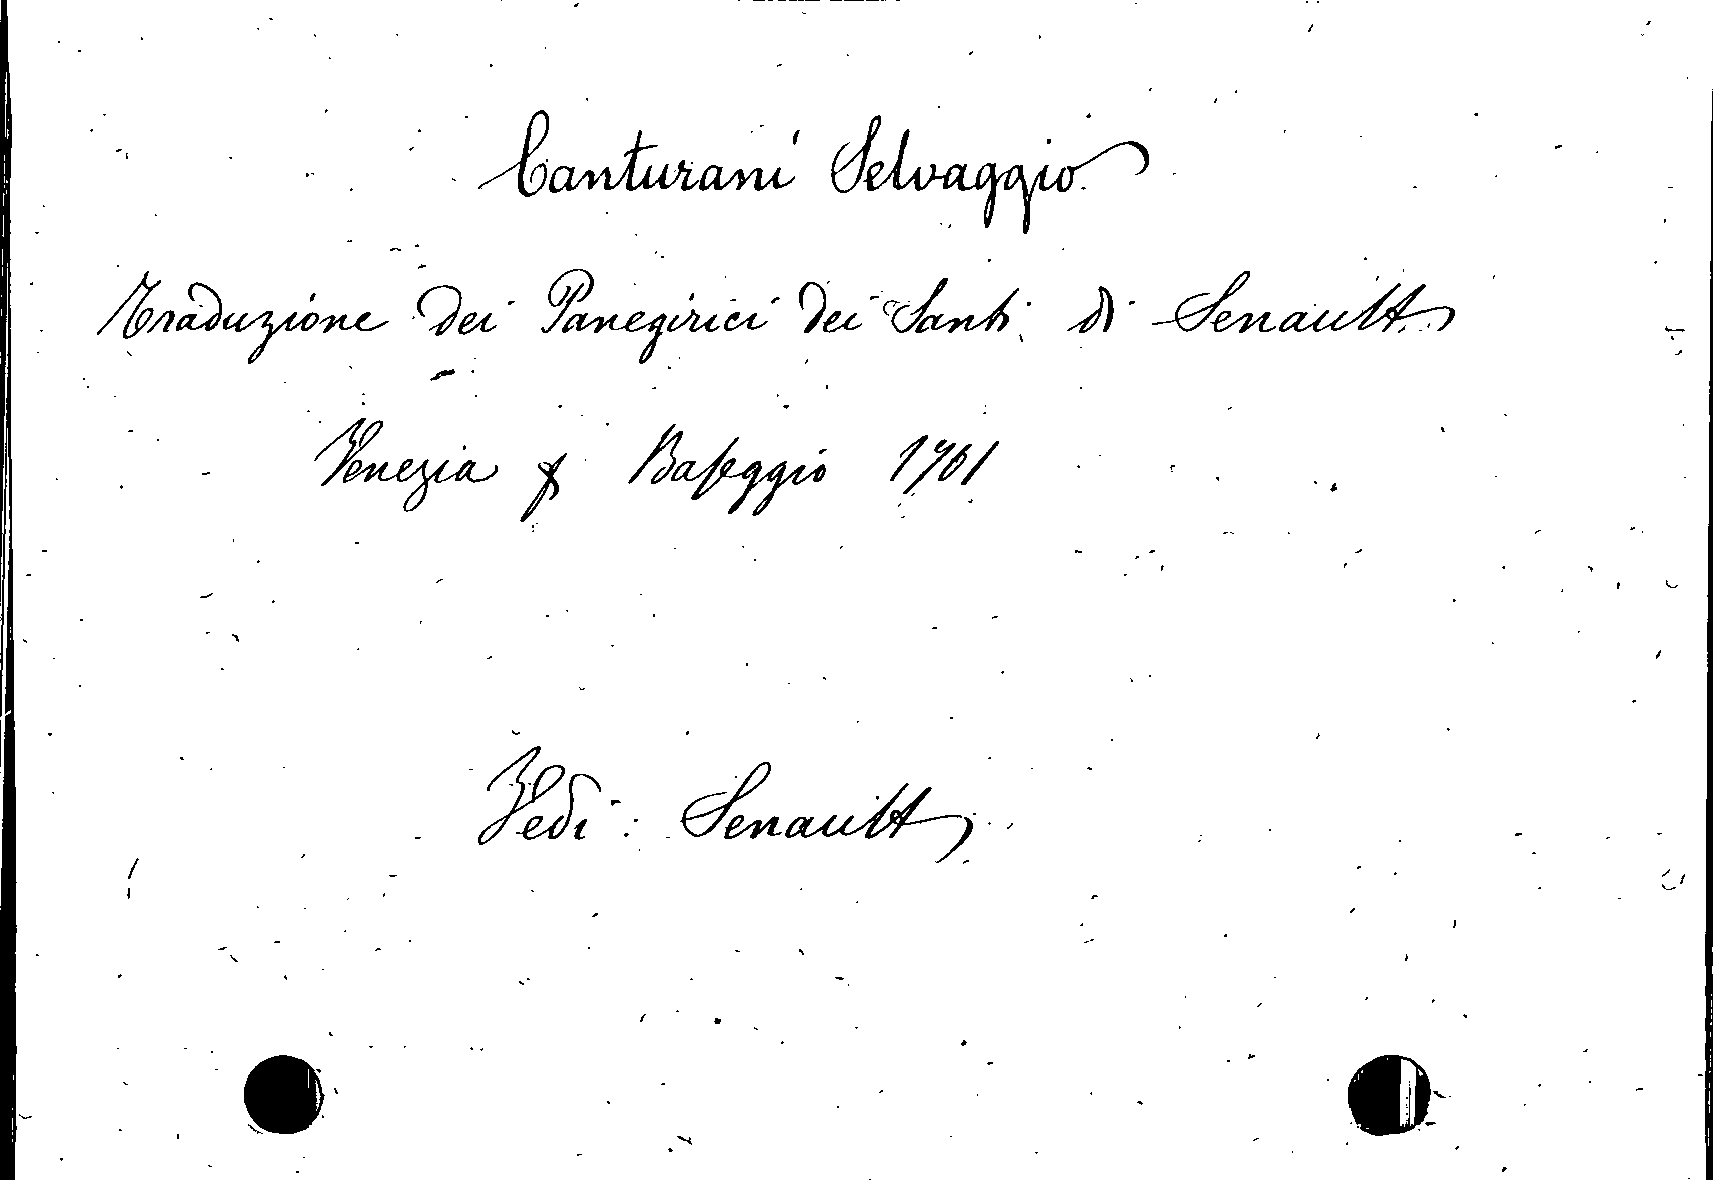 Canturani Selvaggio
Traduzione dei Panegirici dei Santi di Senault
Venezia Baseggio 1701
Vedi: Senault